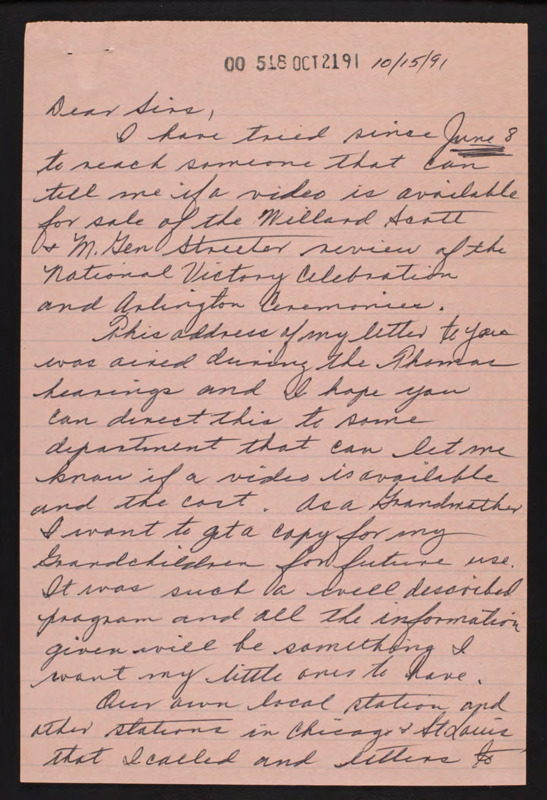 00 518 OCT 21 91 10/15/91
Dear Sirs,
I have tried since June 8
to reach someone that can
tell me if a video is available
for sale of the Willard Scott
& M. Gen Streeter review of the
National Victory Celebration
and Arlington Ceremonies.
This address of my letter to you
was aired during the Thomas
hearings and I hope you
can direct this to some
department that can let me
know if a video is available
and the cost. As a Grandmother
I want to get a copy for my
Grandchildren for future use.
It was such a well described
program and all the information
given will be something I
want my little ones to have.
Our own local station and
other stations in Chicago & St Louis
that I called and letters to